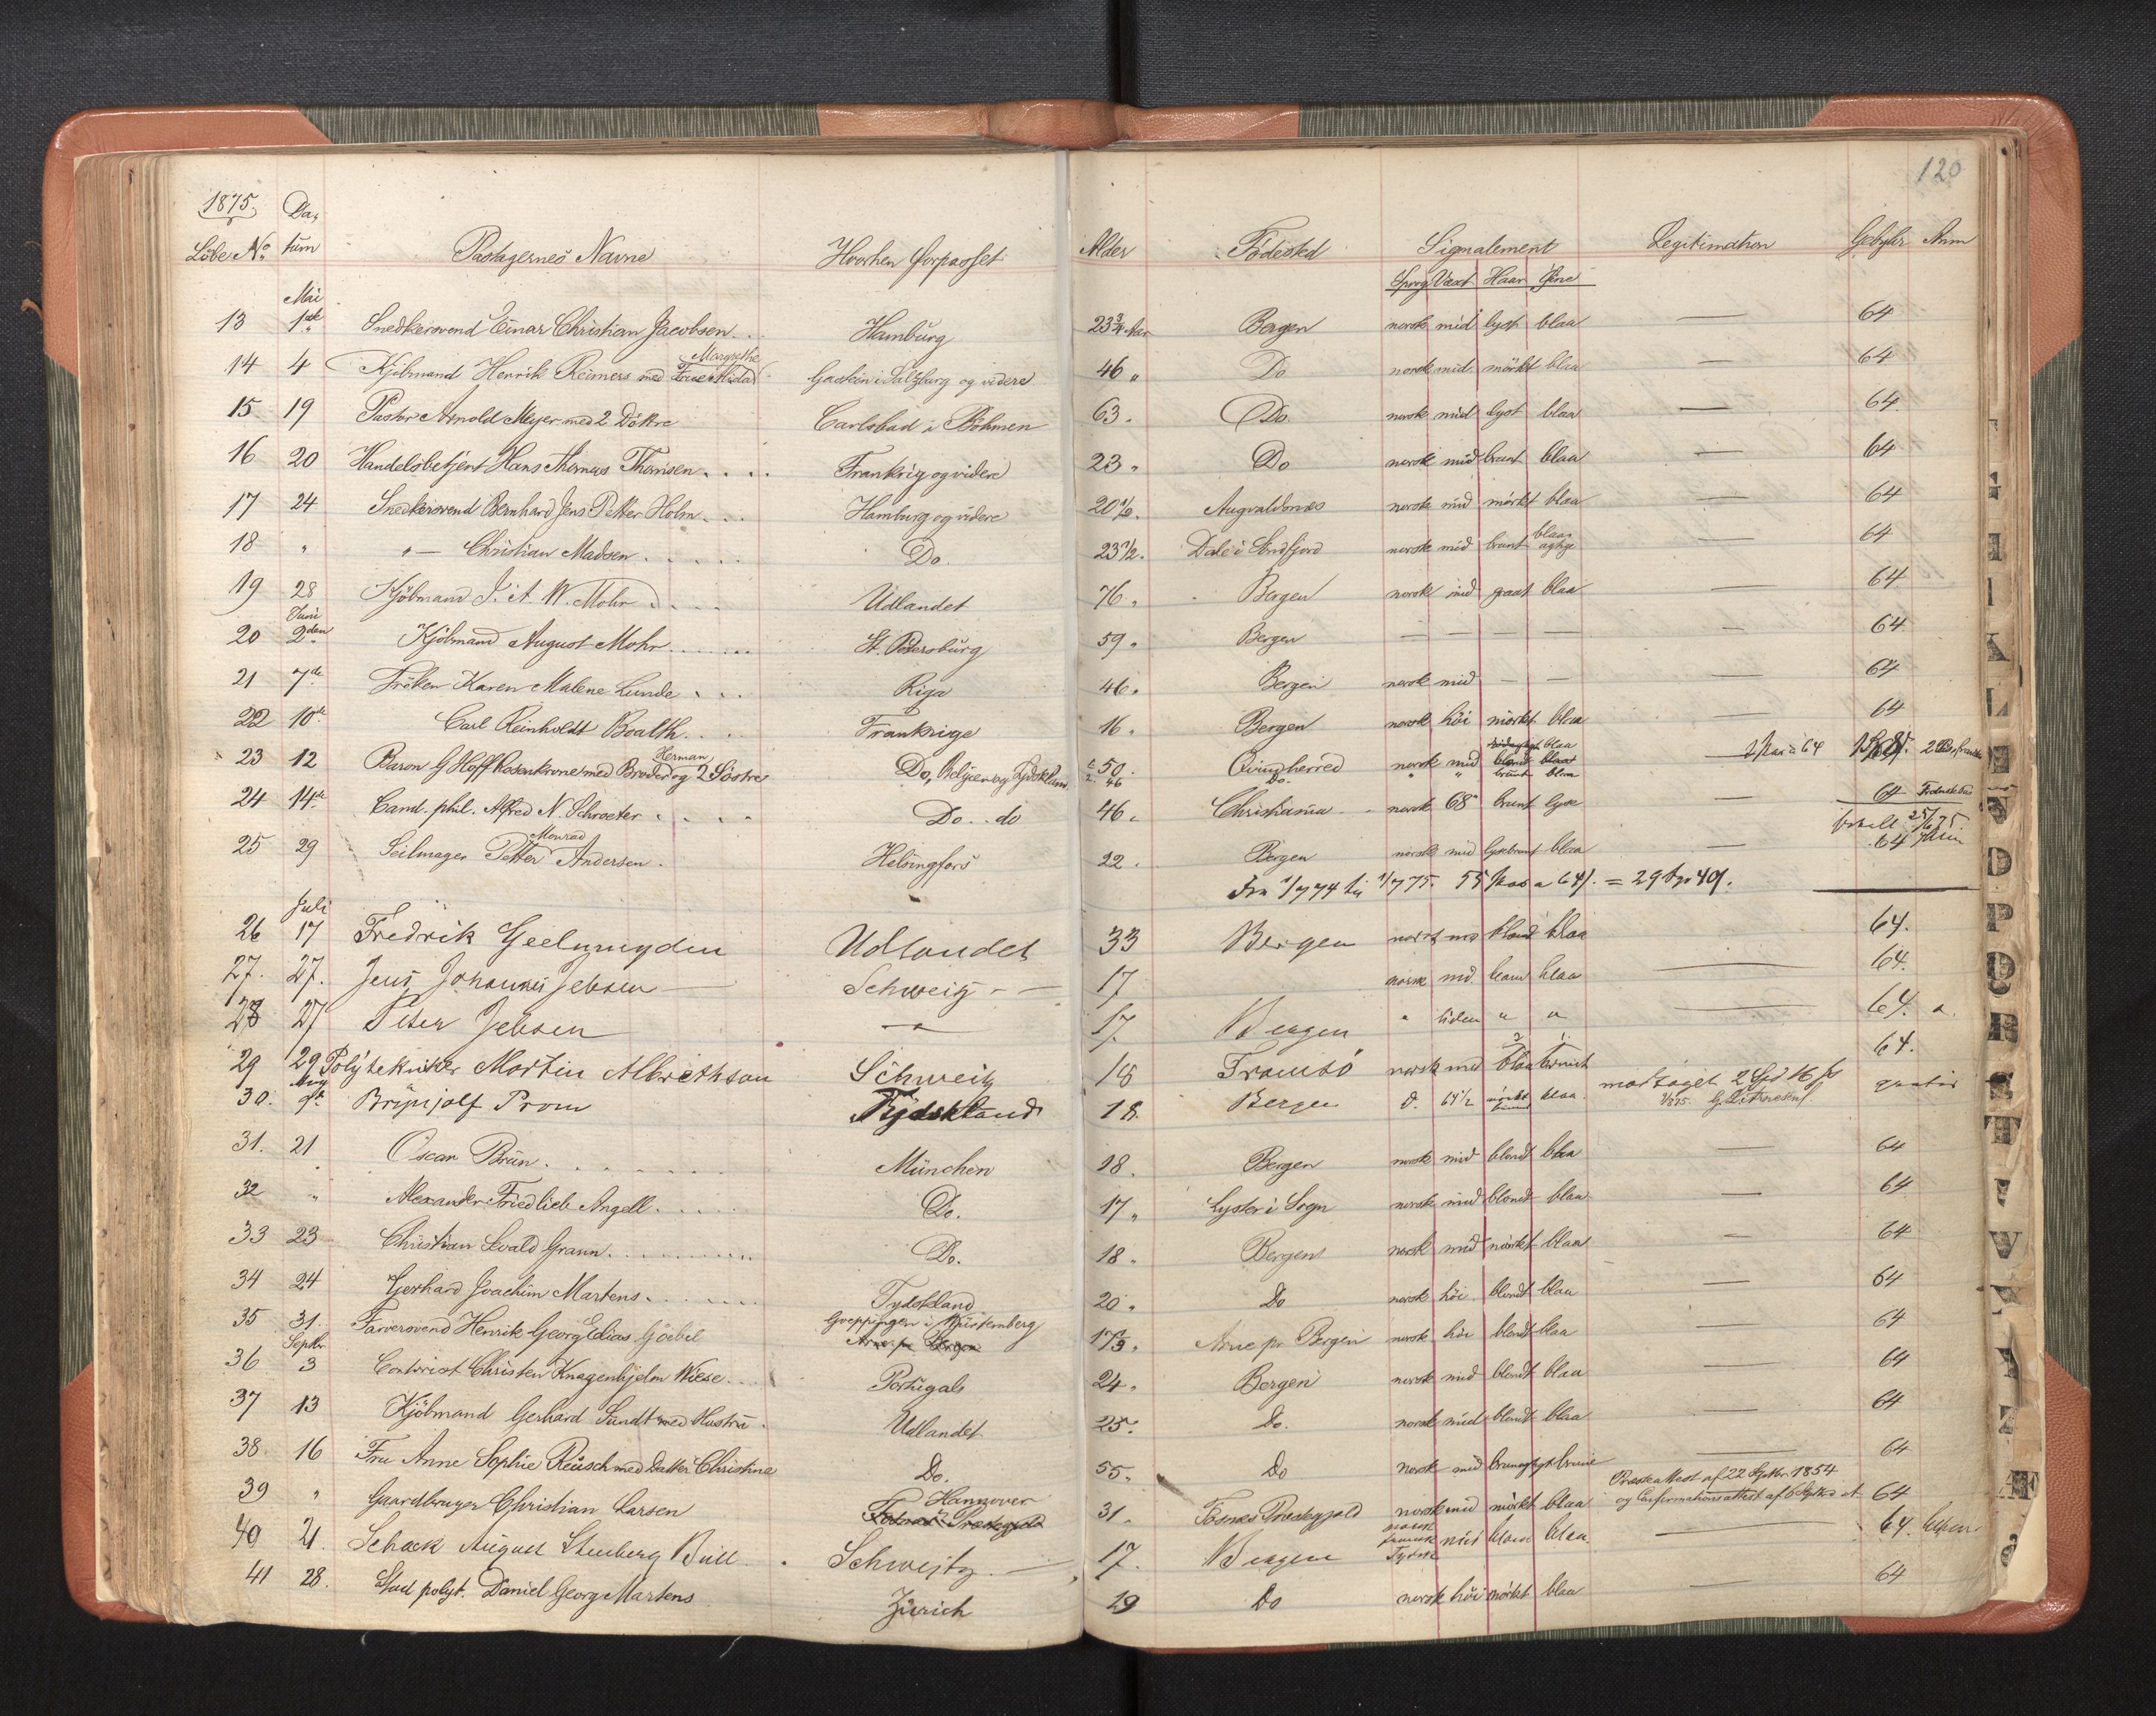 120
1875. Da,
Löbe No tum Pastagernes Navne Hvorhen Forpasset Alder Födested Signalement Legitimation Gebyhr Anm
Sprog Væxt Haar Øine
Mai
13 1ste Snedkersvend Einar Christian Jacobsen Hamburg 23 3/4 Aar Bergen norsk mid lyst blaa — 64
Margrethe
14 4 Kjöbmand Henrik Reimers med Frue i Salzburg og videre 46 „ Do norsk mid mörkt blaa — 64
15 19 Pastor Arnold Meyer med 2 Döttre Carlsbad i Böhmen 63 . Do. norsk mid lyst blaa — 64.
16 20 Handelsbetjent Hans Thomas Thomsen Frankrig og videre 23 „ Do norsk mid brunt blaa — 64
17 24 Snedkersvend Bernhard Jens Petter Holm Hamburg og videre 20 Augvaldsnæs norsk mid mörkt blaa — 64
18 „ „ — Christian Madsen Do. 23 1/2. Dale i Söndfjord norsk mid brunt blaa — 64
19 28 Kjöbmand J. A. W. Mohr Udlandet 76 „ Bergen norsk mid graat blaa — 64
Juni
20 2den Kjöbmand August Mohr St. Petersburg 59 „ Bergen — — — — — 64
21 7de Fröken Karen Malene Lunde Riga 46 „ Bergen norsk mid — — — 64
22 10de Carl Reinholdt Boalth Frankrige 16 „ Bergen norsk höi mörkt blaa — 64
Herman
23 12 Baron G Hoff Rosenkrone med Broder og 2 Söstre Do, Belgien og Tydskland 50. 46 Qvindherred Do. norsk mid blond blaa brunt blaa 64
24 14de Cand. phil. Alfred N. Schroeter Do .. do 46 „ Christiania norsk 68" brunt lyse — 64
25/6 75
Monrad
25 29 Seilmager Petter Andersen. Helsingfors 22 . Bergen norsk mid lysebrunt blaa — 64
Fra 1/7 74 til 1/7 75. 55 Pas a 64 s. = 29 49.
Juli
26 17 Fredrik Geelmuyden Udlandet 33 Bergen norsk mid blond blaa 64.
27. 27. Jens Johannes Jebsen — Schweitz — 17 norsk mid. blaa — 64.
28 27 Peter Jebsen — 17. Bergen „ liden „ „ — 64.
29 29 Polytekniker Martin Albrethson Schweitz 18 Tromsö norsk mid blaa brunt 64.
30. Brynjolf Prom Tydskland 18. Bergen d. 64 1/2 mörkt brunt blaa modtaget 2 Spd 16 gratis
31. 21 Oscar Brün München 18. Bergen norsk mid blondt blaa — 64
32 „ Alexander Friedlieb Angell Do. 17 „ Lyster i Sogn norsk mid blondt blaa — 64
33 23 Christian Svald Grann Do. 18 „ Bergen norsk mid mörkt blaa — 64
34 24 Gerhard Joachim Martens Tydskland 20 „ Do norsk höi blondt blaa — 64
35 31. Farversvend Henrik Georg Elias Göebel Goeppingen i Würtemberg Arne pr Bergen 17 Arne pr Bergen norsk höi blondt blaa — 64
Septbr
36 3 Contorist Christen Knagenhjelm Wiese Portugal 24 „ Bergen norsk mid blondt blaa — 64
37 13 Kjöbmand Gerhard Sundt med Hustru. Udlandet 25. Do. norsk mid blondt blaa — 64
38. 16 Fru Anne Sophie Reüsch med Datter Christine Do. 55 „ Do norsk mid brunagtigt brune — 64
39 „ Gaardbruger Christian Larsen Hannover 31 „ Præstegjæld norsk mid mörkt blaa Præsteattest af 22 Septbr. 1854 og Confirmationsattest af 6 Septbr 64
40 21. Schack August Steenberg Bull. Schweitz. — 17. Bergen norsk fransk Tydsk mid blond blaa — 64.
41 28. Stud polyt. Daniel Georg Martens Zürich 29 Do norsk höi mörkt blaa — 64
I
K
L
D
P
Q
R
S
T
V
Y
Z
Æ